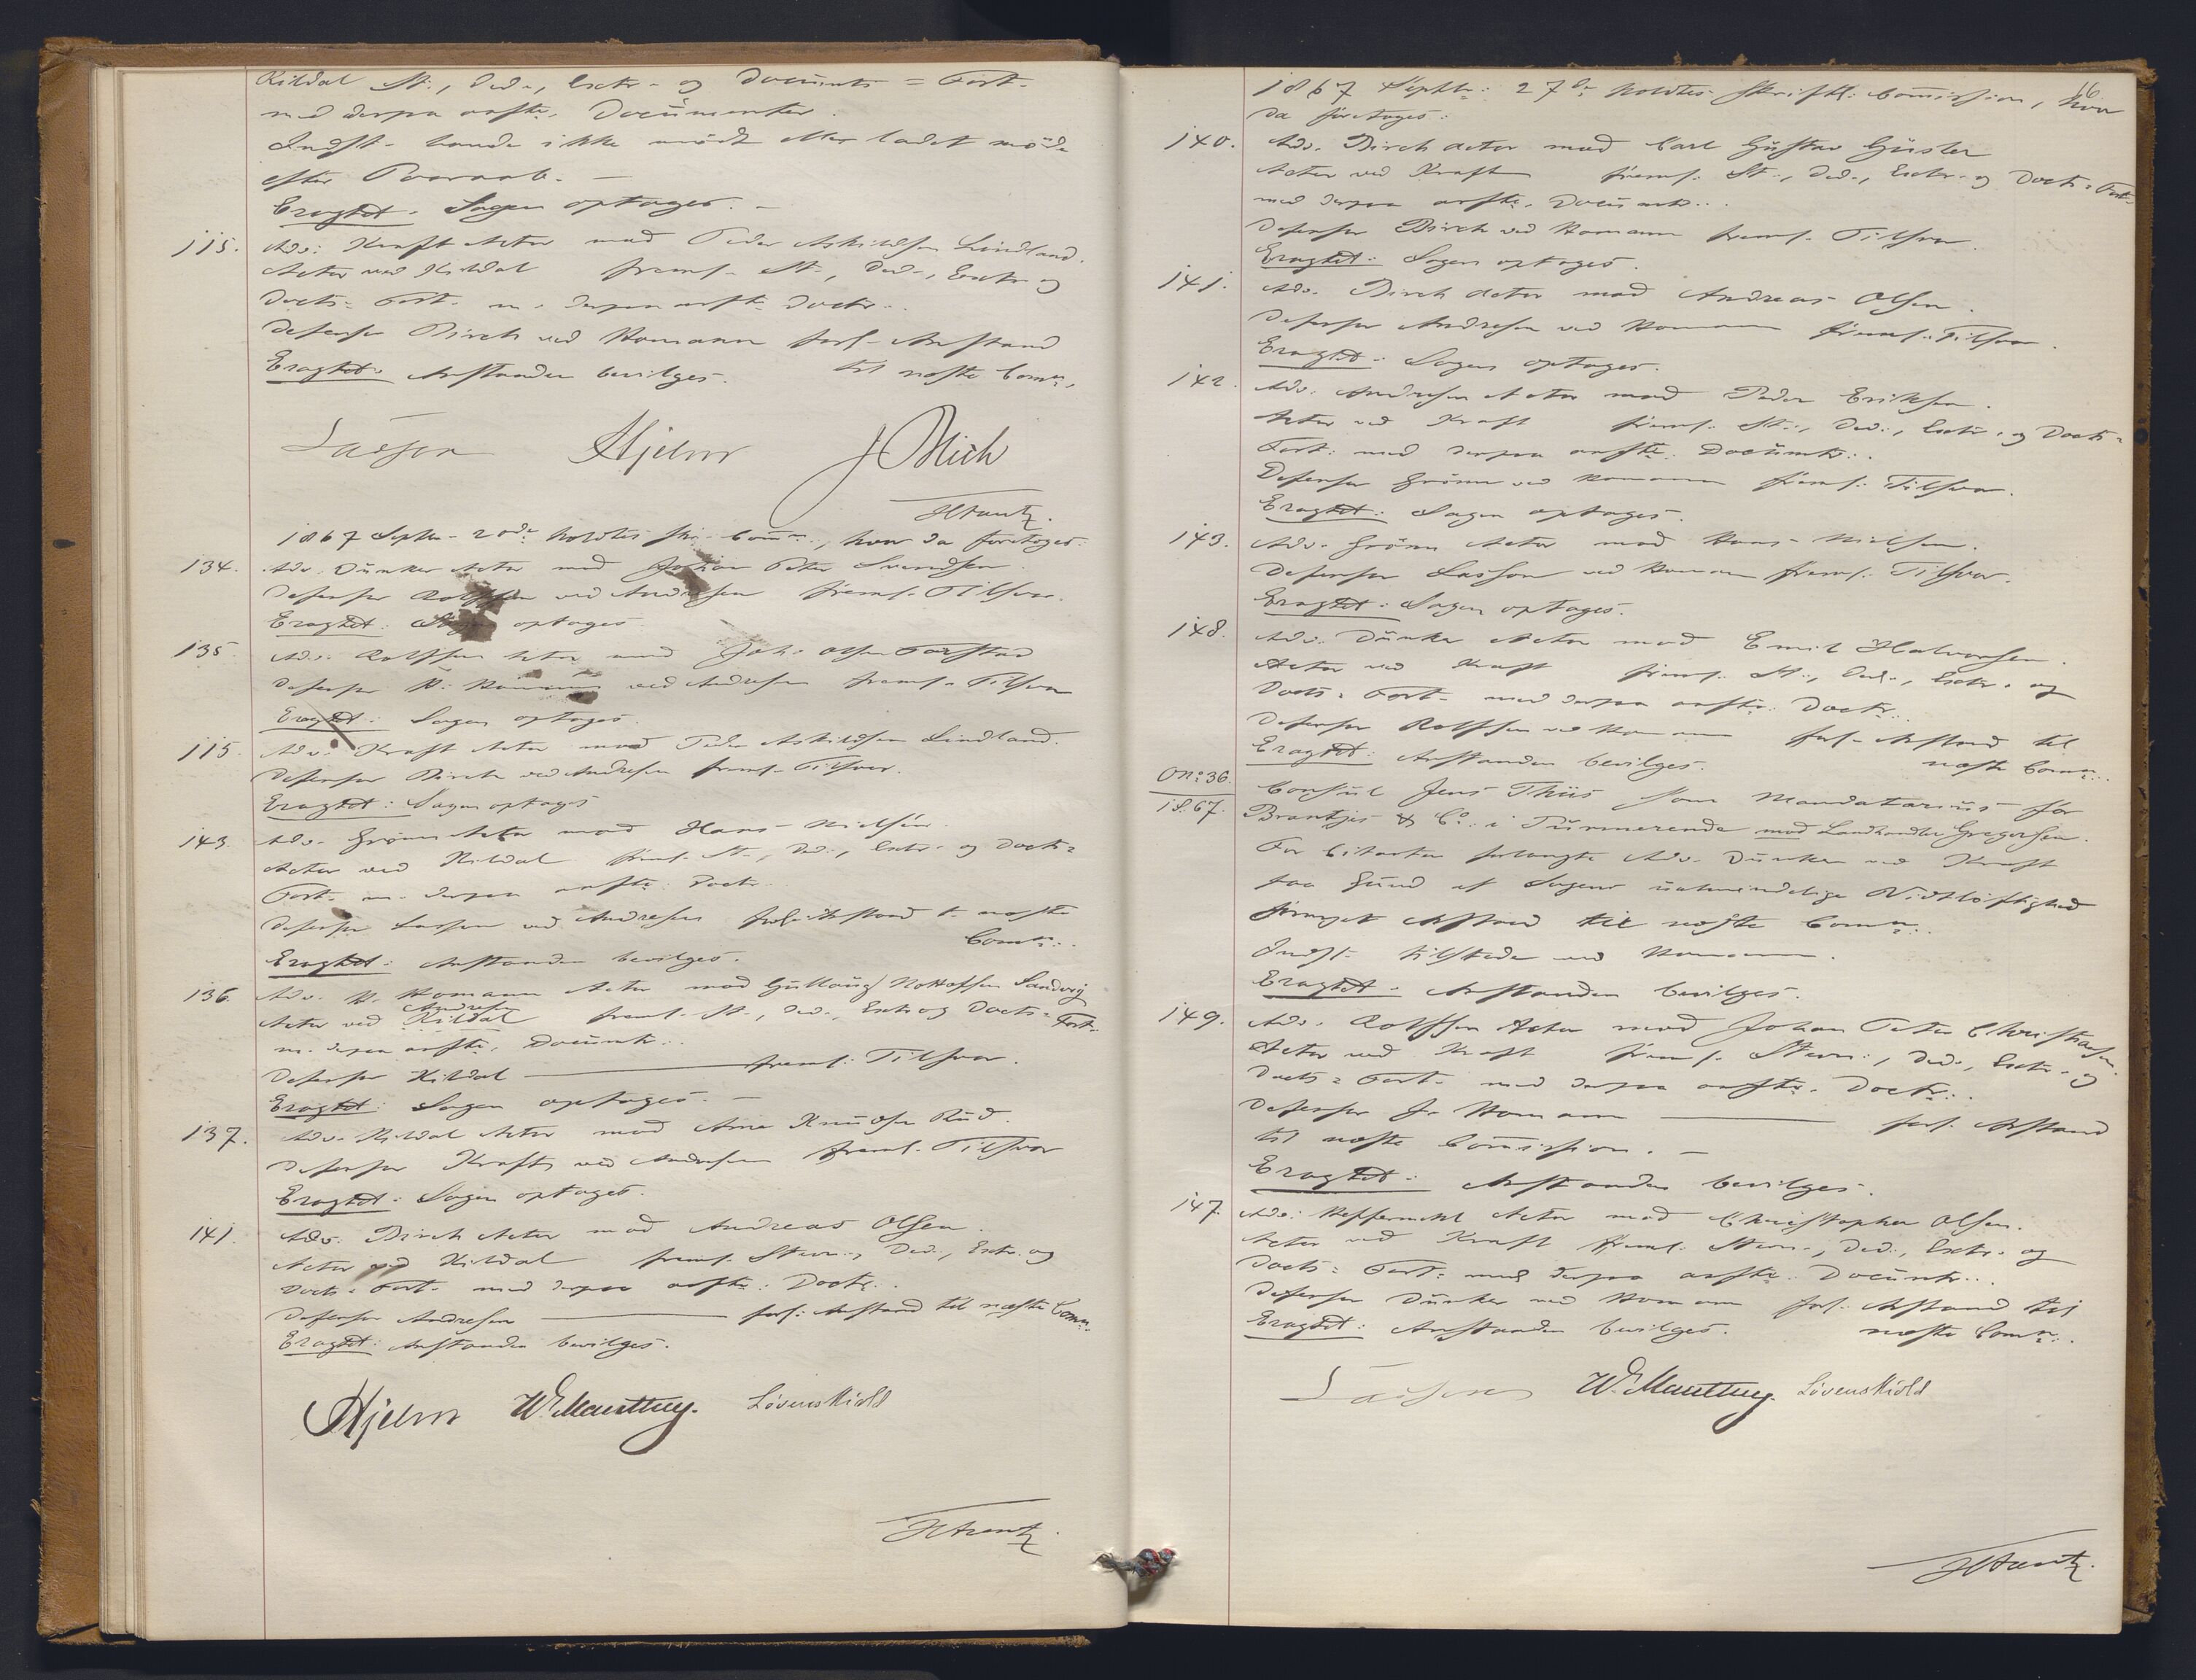 Kildal St:, Ded-, Extr- og Documts = Fort-
med derpaa anfte. Documenter.
Indst- havde ikke mødt eller ladet møde
efter Paaraab. -
Eragtet. Sagen optages. -
115. Adv: Kraft Actor mod Peder Askildsen Lindland.
Actor ved Kildal freml- St-, Ded-, Extr- og
Docts= Fort- m. derpaa anfte Doctr..
Defensor Birch ved Homann forl- Anstand
til næste Comn.
Eragtet: Anstanden bevilges.
Lasson Hjelm J Mich
1867 Septbr- 20de holdtes skr- Comn:, hvor da foretoges:
134. Adv. Dunker Actor mod Johan Peter Svendsen.
Defensor Rolfsen ved Andresen freml- Tilsvar.
Eragtet: Sagen optages.
135. Adv. Rolfsen Actor mod Joh: Olsen
Defensor P: Homann ved Andresen freml- Tilsvar
Eragtet: Sagen optages.
115. Adv. Kraft Actor mod Peder Askildsen Lindland.
Defensor Birch ved Andresen freml- Tilsvar.
Eragtet: Sagen optages
143. Adv. Grønn Actor mod Hans Nielsen
Actor ved Kildal freml- St-, Ded-, Extr- og Docts=
Fort- m. derpaa anfte: Doctr.
Defensor Lasson ved Andresen forl: Anstand t. næste
Comn:.
Eragtet: Anstanden bevilges.
136. Adv. P. Homann Actor mod Gulloug Sandvig
Andresen
Actor ved Kildal freml- St-, Ded-, Extr og Docts= Fort-
m. derpaa anfte. Documtr..
Defensor Kildal freml: Tilsvar.
Eragtet: Sagen optages. -
137. Adv. Kildal Actor mod Arne Knudsen Rud.
Defensor Kraft ved Andresen freml- Tilsvar
Eragtet: Sagen optages.
141. Adv. Birch Actor mod Andreas Olsen.
Actor ved Kildal freml- Stevn-, Ded-, Extr- og
Docts= Fort- med derpaa anfte: Doctr..
Defensor Andresen forl: Anstand til næste Comn.
Eragtet: Anstanden bevilges.
Hjelm Løvenskiold
16
1867 Septbr: 27de holdtes skriftl: Commission, hvor
da foretoges:
140. Adv. Birch Actor mod Carl Gustav Gusler
Actor ved Kraft freml: St-, Ded-, Extr- og Docts= Fort-
med derpaa anfte. Documtr..
Defensor Birch ved Homann freml- Tilsvar.
Eragtet: Sagen optages.
141. Adv. Birch Actor mod Andreas Olsen.
Defensor Andresen ved Homann freml: Tilsvar.
Eragtet: Sagen optages.
142. Adv. Andresen Actor mod Peder Eriksen.
Actor ved Kraft freml- St:, Ded:, Extr- og Docts=
Fort: med derpaa anfte: Documtr..
Defensor Grønn ved Homann freml: Tilsvar.
Eragtet: Sagen optages.
143. Adv. Grønn Actor mod Hans Nielsen.
Defensor Lasson ved Homann freml: Tilsvar.
Eragtet: Sagen optages.
148. Adv. Dunker Actor mod Emil Halvorsen.
Actor ved Kraft freml: St:, Ded-, Extr- og
Docts= Fort- med derpaa anfte: Doctr..
Defensor Rolfsen ved Homann forl- Anstand til
næste Comn:.
Eragtet: Anstanden bevilges.
O No: 36.
1867.
Consul Jens Thiis som Mandatarius for
Brantjes & Co. i Pürmerende mod Landhandler Gregersen.
For Citanten forlangte Adv. Dunker ved Kraft
paa Grund af Sagens ualmindelige Vidtløftighed
fornyet Anstand til næste Comn:.
Indst- tilstede ved Homann.
Eragtet: Anstanden bevilges.
149. Adv. Rolfsen Actor mod Johan Peter Christiansen.
Actor ved Kraft freml- Stevn:, Ded-, Extr- og
Docts= Fort- med derpaa anfte. Doctr..
Defensor J. Homann forl. Anstand
til næste Commission. -
Eragtet: Anstanden bevilges.
147. Adv: Actor mod Christopher Olsen.
Actor ved Kraft freml- Stevn-, Ded-, Extr- og
Docts= Fort- med derpaa anfte. Documtr..
Defensor Dunker ved Homann forl. Anstand til
næste Comn:.
Eragtet: Anstanden bevilges.
Lasson Løvenskiold